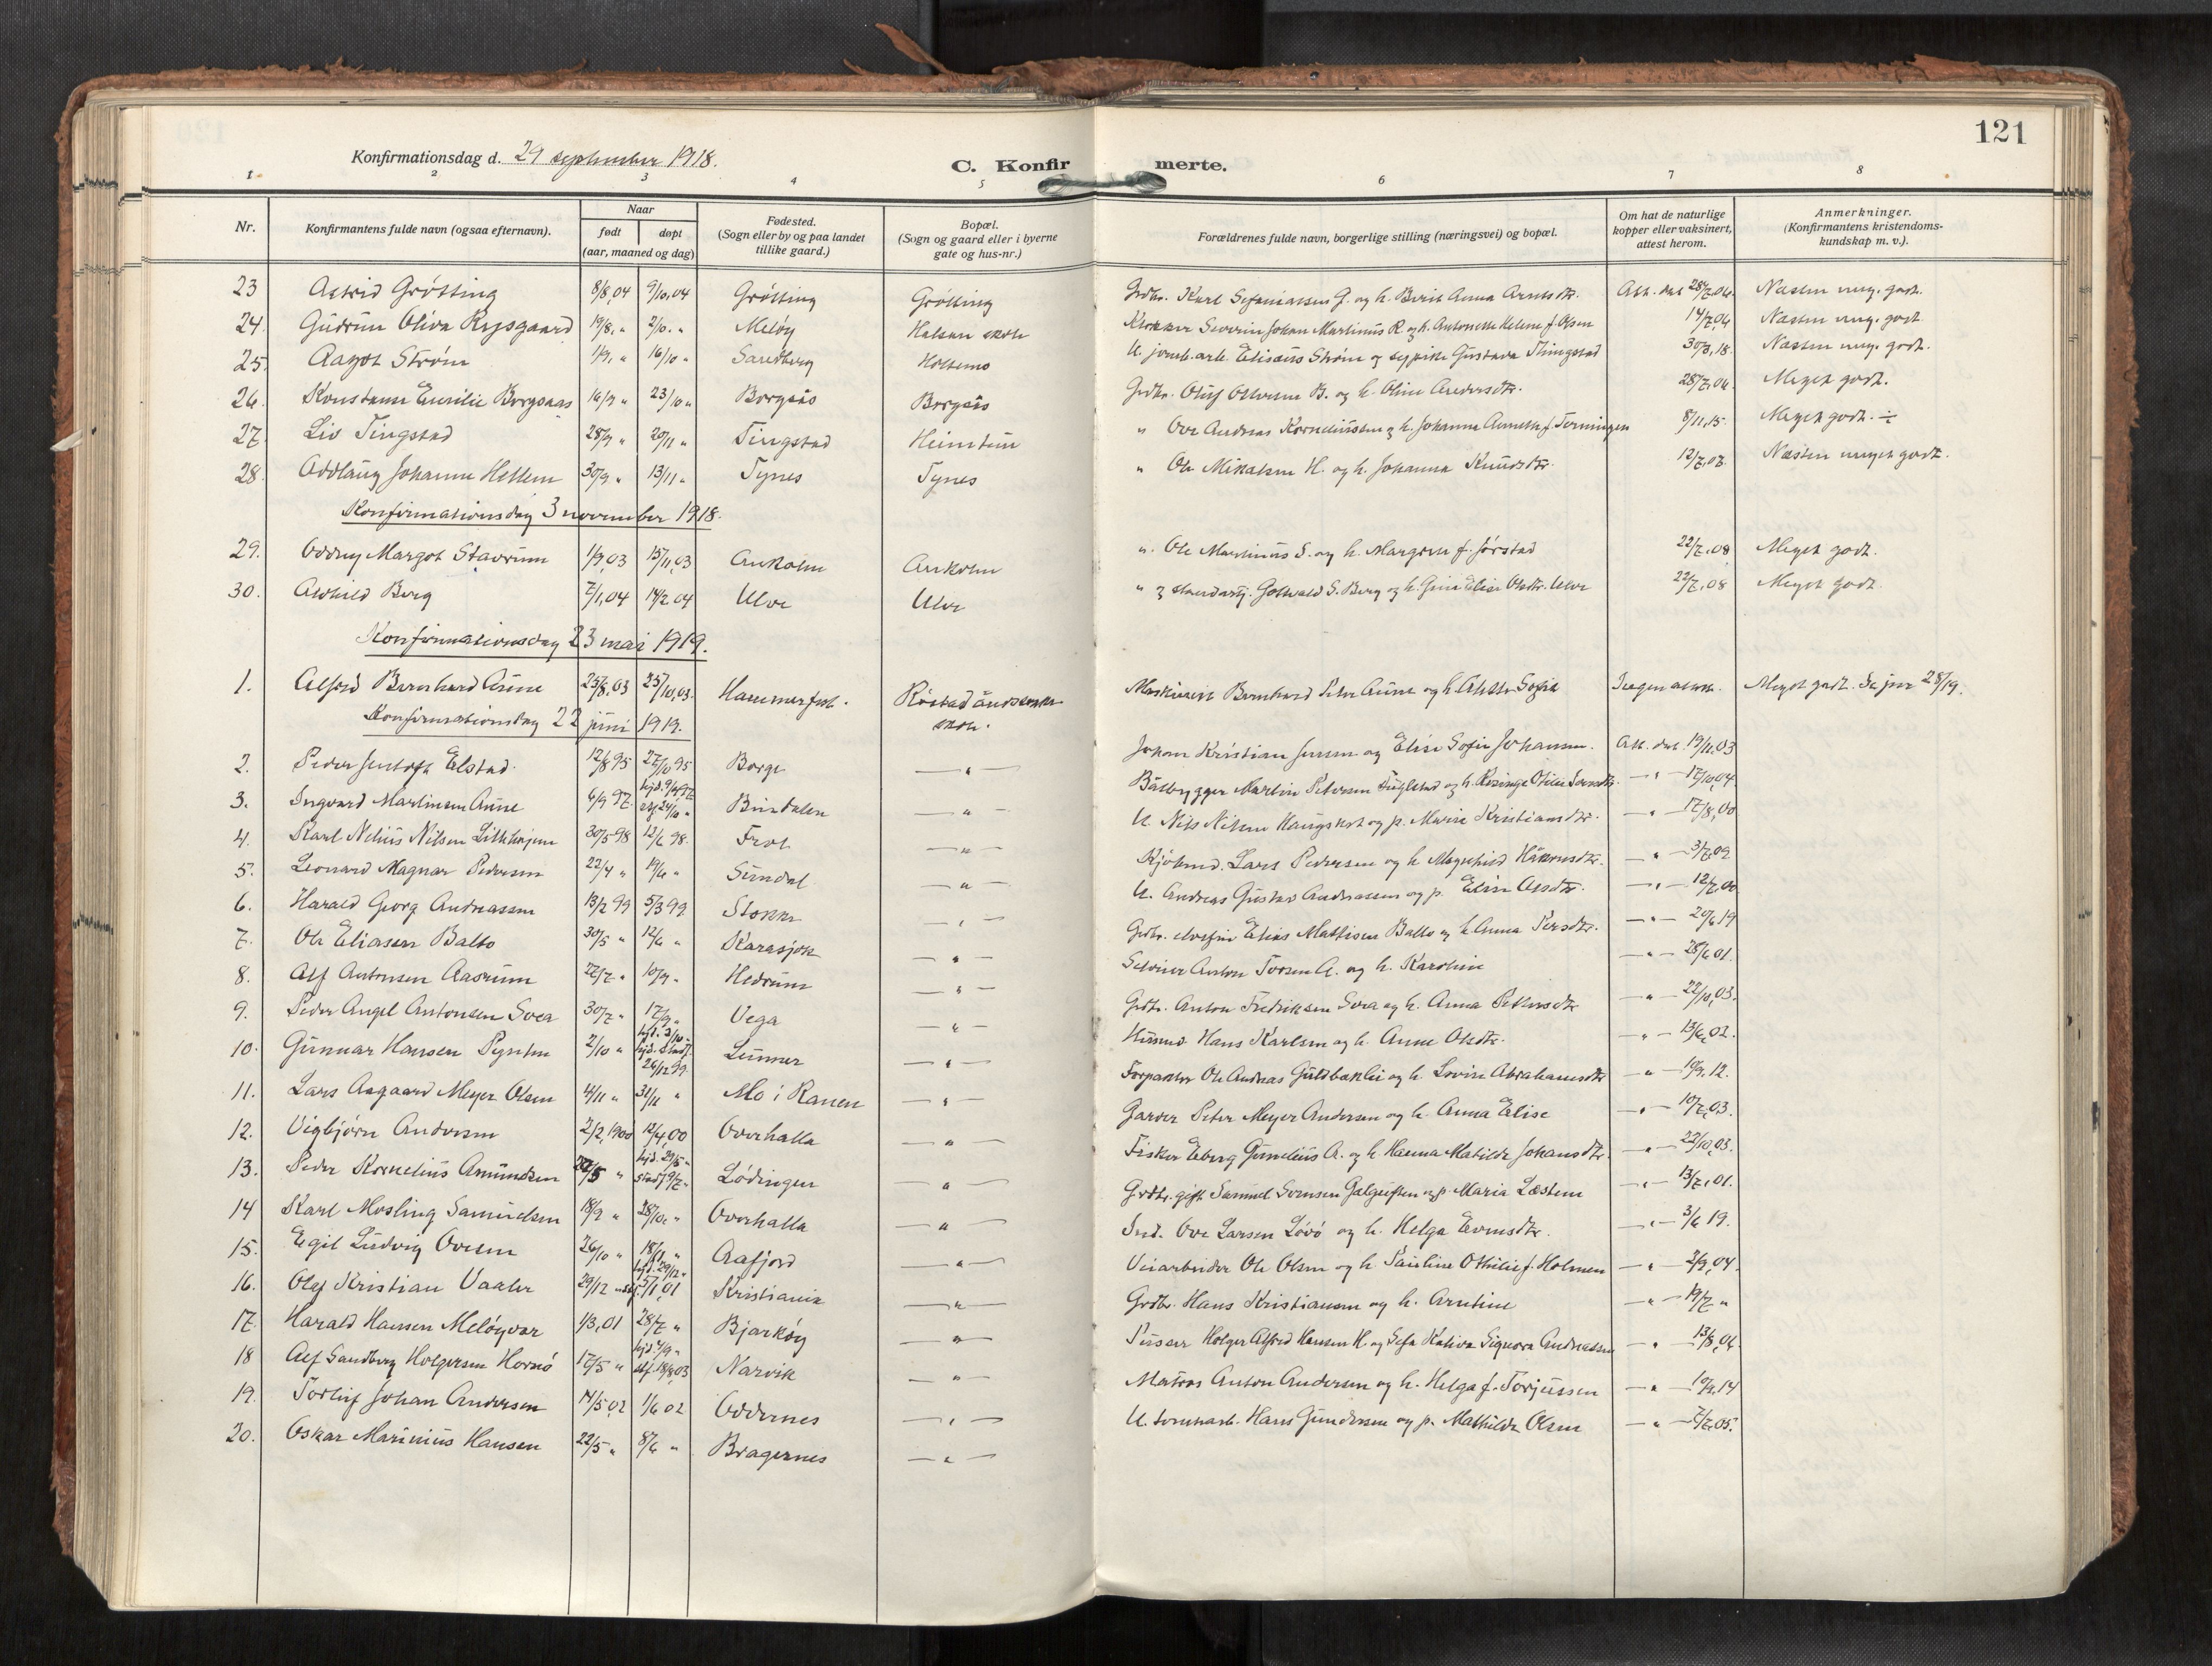 121
Konfirmationsdag d. 29 september 1918.
C. Konfirmerte.
1 2 3 4 5 6 7 8
Nr.
Konfirmantens fulde navn (ogsaa efternavn).
Naar
født
døpt
(aar, maaned og dag)
Fødested.
(Sogn eller by og paa landet
tillike gaard.)
Bopæl.
(Sogn og gaard eller i byerne
gate og hus-nr.)
Forældrenes fulde navn, borgerlige stilling (næringsvei) og bopæl.
Om hat de naturlige
kopper eller vaksinert,
attest herom.
Anmerkninger.
(Konfirmantens kristendoms-
kundskap m. v.).
23 Astrid Grøtting 8/8,04 9/10,04 Grøtting Grøtting Grdbr. Karl G. og h. Berit Anna Arntsdtr. Att. dat 28/7,06. Næsten meg. godt.
24. Gudrun Oliva Rypsgaard 19/8, „ 2/10. „ Meløy Halsan skole Klokker Severin Johan Martinus R. og h. Antonette Helene f. Olsen 14/7,06 Næsten meg. godt
25. Aagot Strøm 1/9, „ 16/10 „ Sandberg Holtemo U. jernb.arb. Elisæus Strøm og sypike Gustava Thingstad 30/3,18. Næsten meg. godt.
26. Konstanse Emilie Borgsaas 16/9 „ 23/10 „ Borgsås Borgsås Grdbr. Oluf Ottersen B. og h. Oline Andersdtr. 28/7,06. Meget godt.
27. Liv Tingstad 28/9 „ 20/11 „ Tingstad Heimtun „ Ove Andreas Korneliussen og h. Johanna f. Terningen 8/11,15. Meget godt. ÷
28. Oddlaug Johanne Hellem 30/9 „ 13/11 „ Tynes Tynes „ Ole Mikalsen H. og h. Johanna Knudsdtr. 12/7,07. Næsten meget godt.
Konfirmationsdag 3 november 1918.
29. Oddny Margot Stavrum 1/9,03 15/11,03 Ankolm Ankolm „ Ole Martinus S. og h. Margrete f. Jørstad 22/7,08 Meget godt.
30. Aashild Berg 7/1,04 14/2 04 Ulve Ulve „ og Gottvald S. Berg og h. Gina Elise Olsdtr. Ulve 22/7,08 Meget godt.
Konfirmationsdag 23 mai 1919.
1. Alfred Bernhard Aune 25/8,03 25/10,03. Hammerfest. Røstad åndssvake skole. Maskinist Bernhard Peter Aune og h. Sofie Ingen attest. Meget godt. Se jnr 28/19.
Konfirmationsdag 22 juni 1919.
2. Peder Jentoft Elstad 12/8 95 27/10 95 Borge — „ — Johan Kristian Jensen og Elise Sofie Johansen. Att. dat. 19/11,03
3. Ingvard Martinsen Aune 6/9 97. hjd. 9/9,97 stf 24/10 „ Bindalen — „ — Båtbygger Martin Petersen Fuglstad og h. — „ — 17/10,04.
4. Karl Nelius Nilsen 30/5 98 12/6 98. Frol — „ — U. Nils Nilsen og p. Marie Kristiansdtr. — „ — 17/8,00
5. Leonard Magnar Pedersen 22/4 „ 19/6 „ Sundal — „ — Kjøbmd. Lars Pedersen og h Magnhild Håkonsdtr. — „ — 3/7,09
6. Harald Georg Andreassen 13/2 99 5/3 99. Stokke — „ — U. Andreas Gustav Andreassen og p. Elise Olsdtr. — „ — 12/7,00
7. Ole Eliassen Balto 30/5 „ 12/6 „ Karasjok — „ — Grdbr. Elias Mathisen Balto og h. Anna Persdtr. — „ — 20/6 19
8. Alf Antonsen Aasrum 22/7 „ 10/9 „ Hedrum — „ — Anton Torsen A. og h. Karoline — „ — 28/6 01.
9. Peder Angel Antonsen Svea 30/7 „ 17/9 „ Vega — „ — Grdbr. Anton Fredriksen Svea og h. Anna Petersdtr — „ — 22/10,03.
10. Gunnar Hansen 2/10 „ hjd. 2/10 „ hjd. stadf. 26/12 99. Lunner — „ — Husmd. Hans Karlsen og h. Anne Olsdtr. — „ — 13/6,02.
11. Lars Aagaard Meyer Olsen 4/11 „ 31/12 „ Mo i Ranen — „ — Forpakter Ole Andreas Guldbaklie og h. Lovise Abrahamsdtr — „ — 10/9,12.
12. Vigbjørn Andersen 2/2,1900 12/4,00 Overhalla — „ — Garver Peter Meyer Andersen og h. Anna Elise — „ — 10/7,03.
13. Peder Kornelius Amundsen /5 „ hjd. 29/5 „ stadf. 9/7 „ Lødingen — „ — Fisker Eberg Gunelius A. og h. Hanna Matilde Johansdtr. — „ — 22/10,03.
14 Karl Mosling Samuelsen 18/9 „ 28/10. „ Overhalla — „ — Grdbr. gift Samuel Sørensen og p. Maria Læstem — „ — 13/7,01.
15. Egil Ludvig Ovesen 26/10 „ 18/11 „ Aafjord — „ — Ind. Ove Larsen Løvø og h. Helga Evensdtr. — „ — 3/6 19.
16. Olaf Kristian Vaaler 29/12 „ hjd. 29/12 „ stf. 5/1 01 Kristiania — „ — Veiarbeider Ole Olsen og h. Pauline Othilie f. Holmen — „ — 2/9,04.
17. Harald Hansen Meløyvær 1/3,01 28/7 „ Bjarkøy — „ — Grdbr. Hans Kristiansen og h. Arntine — „ — 19/7 „
18 Alf Sandberg Holgersen Hornø 17/5 „ hjd. 4/9 „ stf. 18/8,03 Narvik — „ — Pusser Holger Alfred Hansen H. og Signora Andreassen — „ — 13/8,06.
19. Torleif Johan Andersen 14/5 02 1/6 02 Oddernes — „ — Matros Anton Andersen og h. Helga f. Torjussen — „ — 10/9,14
20. Oskar Marinius Hansen 22/5 „ 8/6 „ Bragernes — „ — U. tomtearb. Hans Gundersen og p. Mathilde Olsen — „ — 7/7,05.